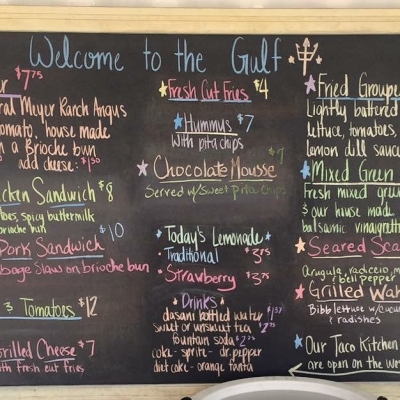 Welcome to the Gulf
$7.75
Meyer Ranch Angus
tomato, house made
a Brioche bun
add cheese: $1.50
Sandwich $8
spicy buttermilk
brioche bun
Pork Sandwich $10
Slaw on brioche bun
& Tomatoes $12
Grilled Cheese $7
with fresh cut fries
Fresh Cut Fries $4
Hummus $7
With pita chips
Chocolate Mousse $7
Served w/Sweet Pita Chips
Today's Lemonade
Traditional $3.75
Strawberry $3.75
Drinks
dasani bottled water
sweet or unsweet tea
fountain soda
coke - sprite - dr. pepper
diet coke - orange fanta
Fried
Lightly battered
lettuce, tomatoes,
lemon dill sauce
Mixed Green
Fresh mixed
& our house made
balsamic
Seared
Arugula, radicchio,
& bell pepper
Grilled
Bibb lettuce w/
& radishes
Our Taco Kitchen
are open on the